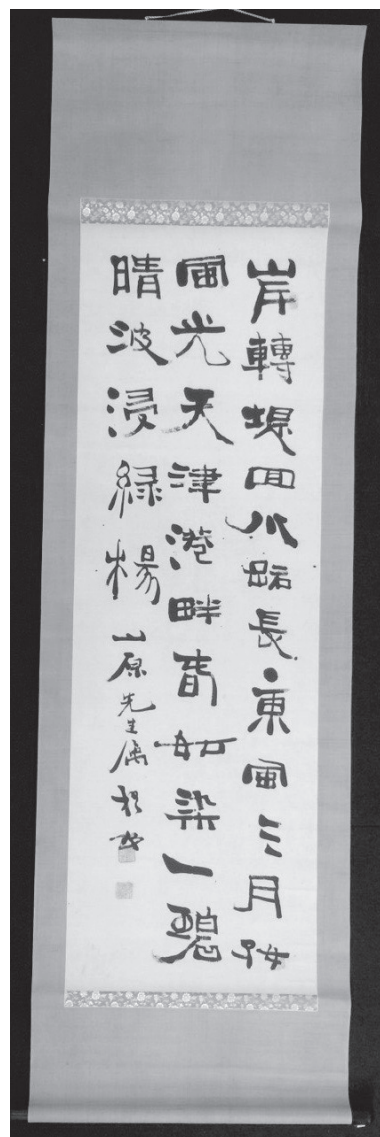 岸轉堤回水路長東風三月好
風光天津港畔春如染一碧
晴波浸緑楊 山原先生属